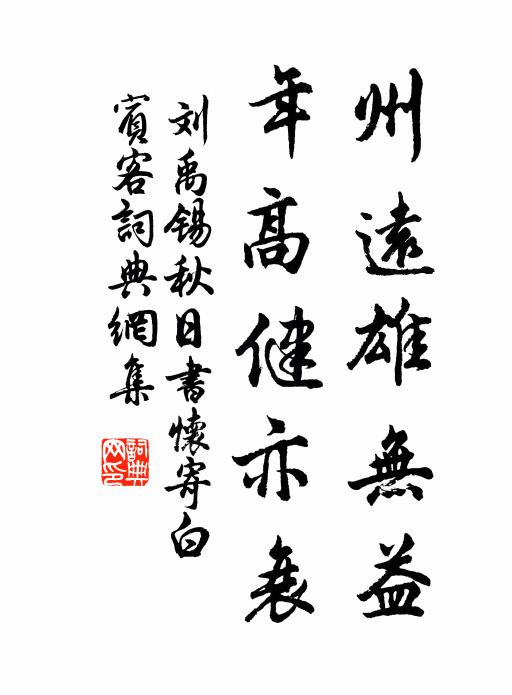 州遠雄無益
年高健亦衰
刘禹锡秋日書懷寄白
賓客詞典網集
詞典网印